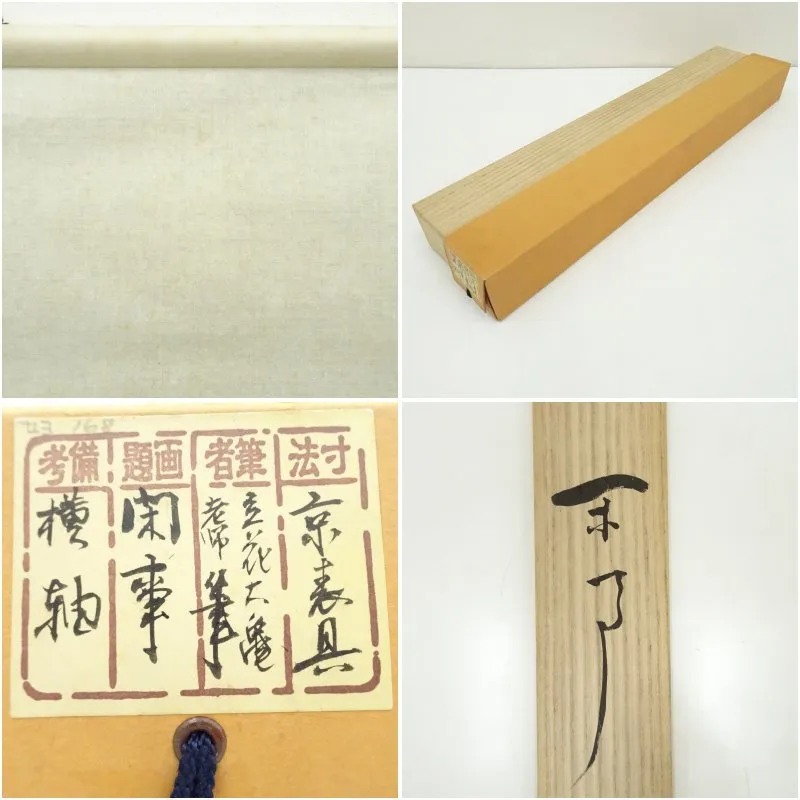 168
寸法
京表具
筆者
立花大亀
老師
筆
画題
閑事
備考
横軸
閑事